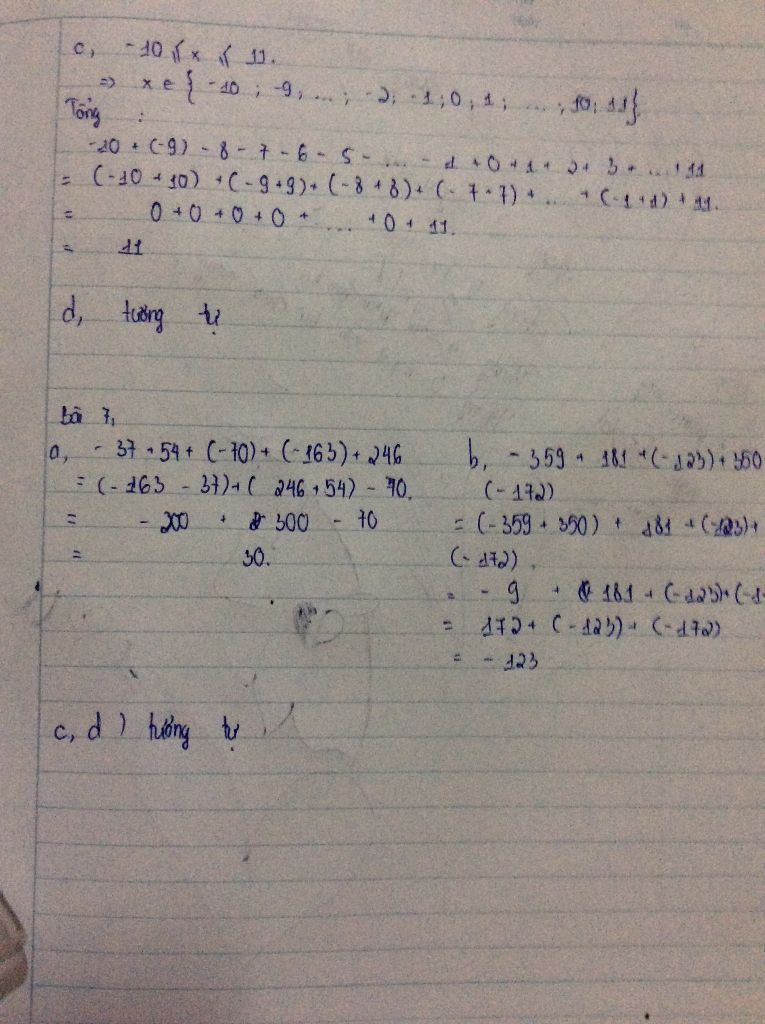 c, -10 ≤ x ≤ 11.
=> x ∈ { -10 ; -9 ; ... ; -2; -1 ; 0 ; 1 ; ... ; 10 ; 11}
Tổng :
-10 + (-9) - 8 - 7 - 6 - 5 - ... - 1 + 0 + 1 + 2 + 3 + ... + 11
= (-10 + 10) + (-9 + 9) + (-8 + 8) + (-7 + 7) + ... + (-1 + 1) + 11.
= 0 + 0 + 0 + 0 + ... + 0 + 11.
= 11
d, tương tự
bài 7,
a, - 37 + 54 + (-70) + (-163) + 246
= (-163 - 37) + ( 246 + 54) - 70.
= - 200 + 300 - 70
= 30.
b, - 359 + 181 + (-123) + 350
(-172)
= (-359 + 350) + 181 + (-123) +
(-172) .
= - 9 + 181 + (-123) + (-1
= 172 + (-123) + (-172)
= - 123
c, d ) tương tự